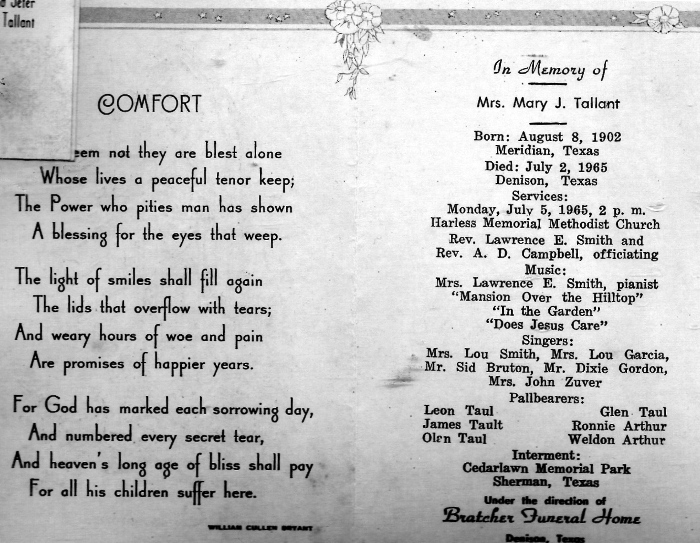 Jeter
Tallant
COMFORT
not they are blest alone
Whose lives a peaceful tenor keep;
The Power who pities man has shown
A blessing for the eyes that weep.
The light of smiles shall fill again
The lids that overflow with tears;
And weary hours of woe and pain
Are promises of happier years.
For God has marked each sorrowing day,
And numbered every secret tear,
And heaven's long age of bliss shall pay
For all his children suffer here.
WILLIAM CULLEN BRYANT
In Memory of
Mrs. Mary J. Tallant
Born: August 8, 1902
Meridian, Texas
Died: July 2, 1965
Denison, Texas
Services:
Monday, July 5, 1965, 2 p. m.
Harless Memorial Methodist Church
Rev. Lawrence E. Smith and
Rev. A. D. Campbell, officiating
Music:
Mrs. Lawrence E. Smith, pianist
"Mansion Over the Hilltop"
"In the Garden"
"Does Jesus Care"
Singers:
Mrs. Lou Smith, Mrs. Lou Garcia,
Mr. Sid Bruton, Mr. Dixie Gordon,
Mrs. John Zuver
Pallbearers:
Leon Taul Glen Taul
James Tault Ronnie Arthur
Olen Taul Weldon Arthur
Interment:
Cedarlawn Memorial Park
Sherman, Texas
Under the direction of
Bratcher Funeral Home
Denison, Texas